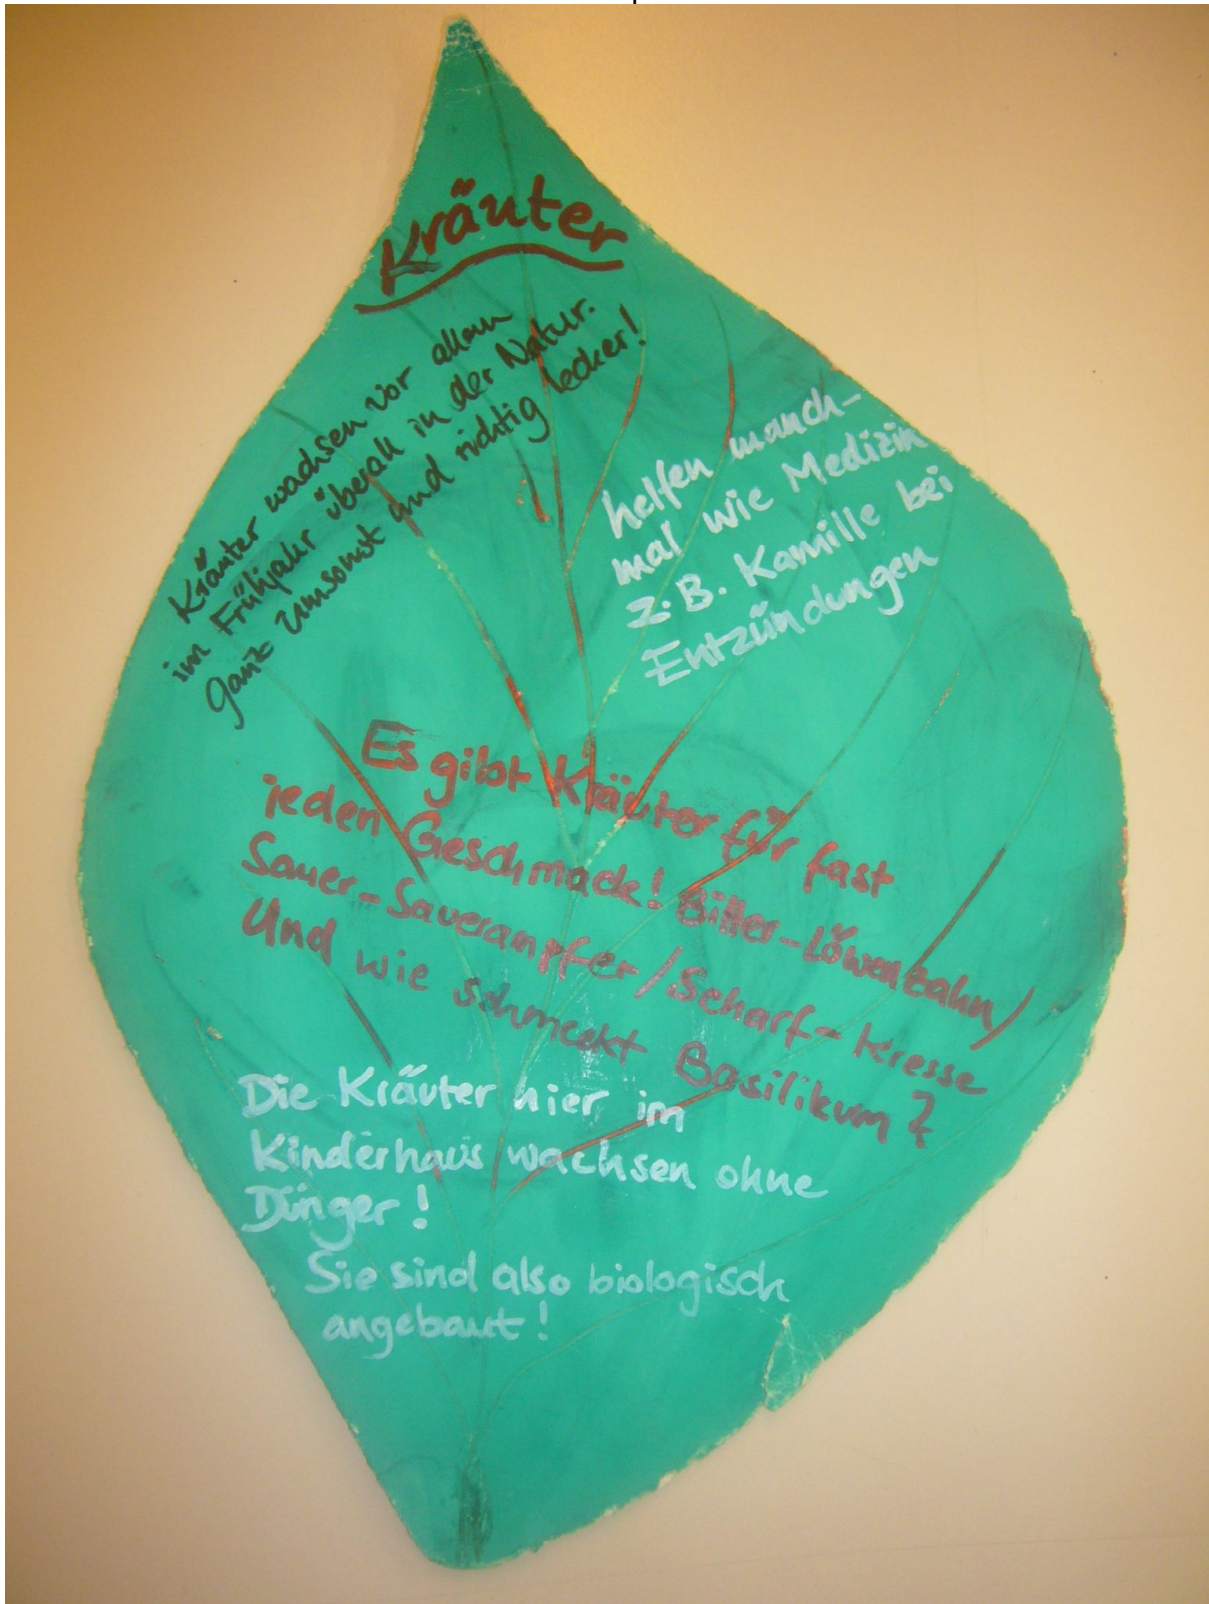 Kräuter
Kräuter wachsen vor allem
im Frühjahr überall in der Natur.
ganz umsonst und richtig lecker!
helfen manch-
mal wie Medizin
z.B. Kamille bei
Entzündungen
Es gibt Kräuter für fast
jeden Geschmack! Bitter-Löwenzahn/
Sauer-Sauerampfer/Scharf-Kresse
Und wie schmeckt Basilikum?
Die Kräuter hier im
Kinderhaus wachsen ohne
Dünger!
Sie sind also biologisch
angebaut!